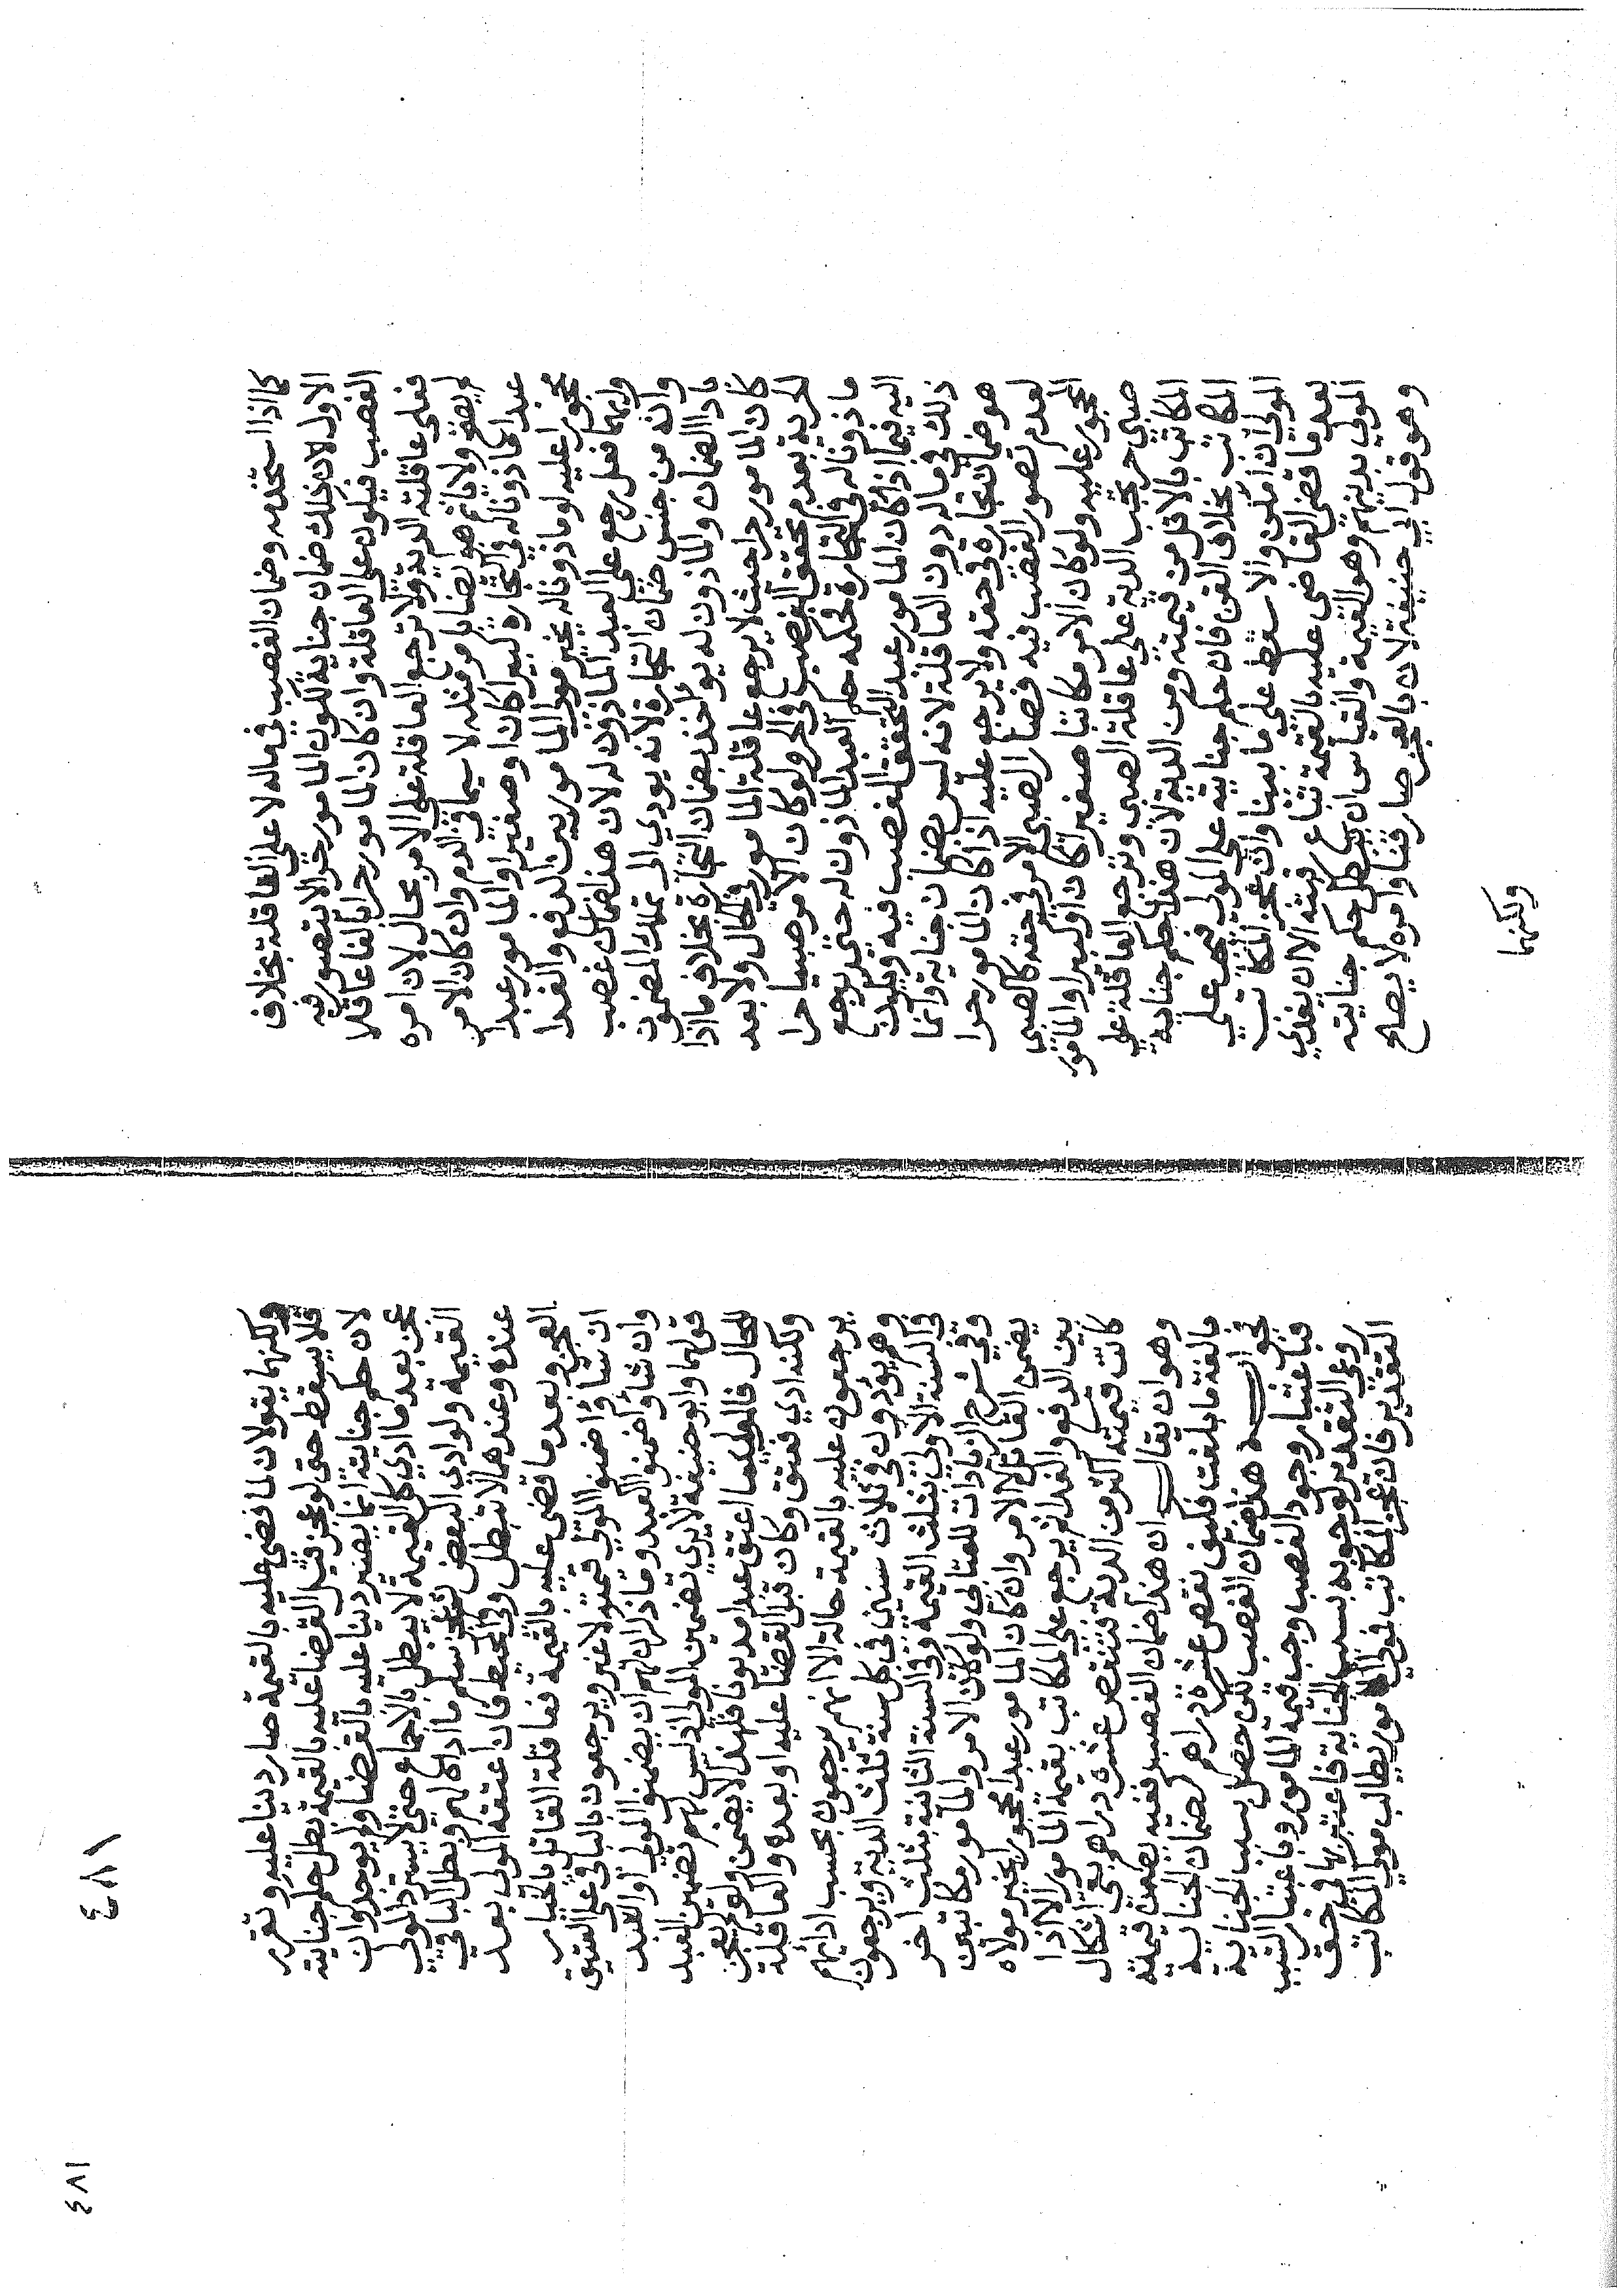 كما اذا استخدمه وضمان الغصب في ماله لا على العاقلة بخلاف
الاول لان ذلك ضمان جناية لكون المامور حرا لا يتصور فيه
الغصب فيكون على العاقلة وان كان المامور حرا بالغا عاقلا
فعلى عاقلته الدية ولا ترجع العاقلة على الامر بحال لان امره
لم يصح ولا ياثم هو ايضا بامر مثله لا سيما في الدم وان كان الامر
عبدا ماذونا له في التجارة كبيرا كان او صغيرا والمامور عبدا
محجورا عليه او ماذونا له يخير مولي المامور بين الدفع والفدا
وايهما فعل رجع على العبد الماذون له لان هذا ضمان غصب
وانه من جنس ضمان التجارة لانه يودي الى تملك المضمون
باداا الضمان والماذون له يؤاخذ بضمان التجارة بخلاف ما اذا
كان المامور حرا حيث لا يرجع عاقلة المامور في الحال ولا بعد
الحرية لعدم تحقق الغصب في الحر ولو كان الامر صبيا حرا
ماذونا له في التجارة فحكمه حكم العبد الماذون له حتى يرجع
اليه فيما اذا كان المامور عبدا لتحقق الغصب فيه ويكون
ذلك في ماله دون العاقلة لانه ليس بضمان جناية وانما
هو ضمان تجارة في حقه ولا يرجع عليه اذا كان المامور حرا
لعدم تصور الغصب فيه فصار الصبي الامر في حقه كالصبي
المحجور عليه ولو كان الامر مكاتبا صغيرا كان او كبيرا والمامور
صبي حر تجب الدية على عاقلة الصبي وترجع العاقلة علي
المكاتب بالاقل من قيمته ومن الدية لان هذا حكم جناية
المكاتب بخلاف القن فان حكم جنايته على المولى فيجب علي
المولي ان امكن والا سقط على ما بينا وان عجز المكاتب
بعد ما قضى القاضى عليه بالقيمة تباع رقبته الا ان يفدي
المولي بديتهم وهو القيمة والقياس ان يبطل حكم جنايته
وهو قول ابي حنيفة لان بالعجز صار قنا وامره لا يصح
ولكنهما
١٨٤
١٨٤
ولكنهما يقولان لما قضي عليه بالقيمة صار دينا عليه وتقرر
فلا يسقط حتى لو عجز قبل القضا عليه بالقيمة بطل حكم جنايته
لان حكم جنايته انما يصير دينا عليه بالقضا ولم يوجد وان
عجز بعد ما ادي كل القيمة لا يبطل بالاجماع حتى لا يسترد المولي
القيمة ولو ادى البعض ثم عجز سلم ما اداه لهم وبطل الباقي
عنده وعندهما لا تبطل وفي المحيط فان اعتقه المولى بعد
العجز وبعد ما قضى عليه بالقيمة فعاقلة القاتل بالخيار
ان شاؤا ضمنوا المولي قيمته لا غير ويرجعون بالباقي على العتيق
وان شاؤا ضمنوا العبد وما ذكر ان لهم ان يضمنوا المولى او العبد
قولهما وابو حنيفة لا يري تضمين المولى اذ ليس لهم تضمين العبد
للحال فالمولي كما اعتق عبدا مديونا فلهذا لا يضمن ولو لم يعجز
ولكنه ادي فعتق وكان قبل القضا عليه او بعده والعاقلة
يرجعون عليه بالقيمة حالة الا انهم يرجعون بحسب ادائهم
وهم يؤدون في ثلاث سنين في كل سنة ثلث الدية ويرجعون
في السنة الاولي بثلث القيمة وفي السنة الثانية بثلث اخر
وفي شرح الزيادات للعتابي ولو كان الامر والمامور مكاتبين
يضمن القاتل لا الامر وان كان المامور عبدا محجورا يخير مولاه
بين الدفع والفدا ثم يرجع علي المكاتب بقيمة المامور الا اذا
كانت قيمته اكثر من الدية فتنقص عشرة دراهم بقي اشكال
وهو ان يقال ان هذا ضمان الغصب ففيه يضمن قيمته
بالغة ما بلغت فكيف نقص عشرة دراهم كضمان الجناية
نجوابــــه هذا ضمان الغصب لكن حصل بسبب الجناية
فباعتبار وجود الغصب وجب قيمة المامور وباعتبار السبب
روعي التقدير لوجوبه بسبب الجناية فاعتبر بها في حق
التقدير فان عجز المكاتب فمولي المامور يطالب مولي المكاتب